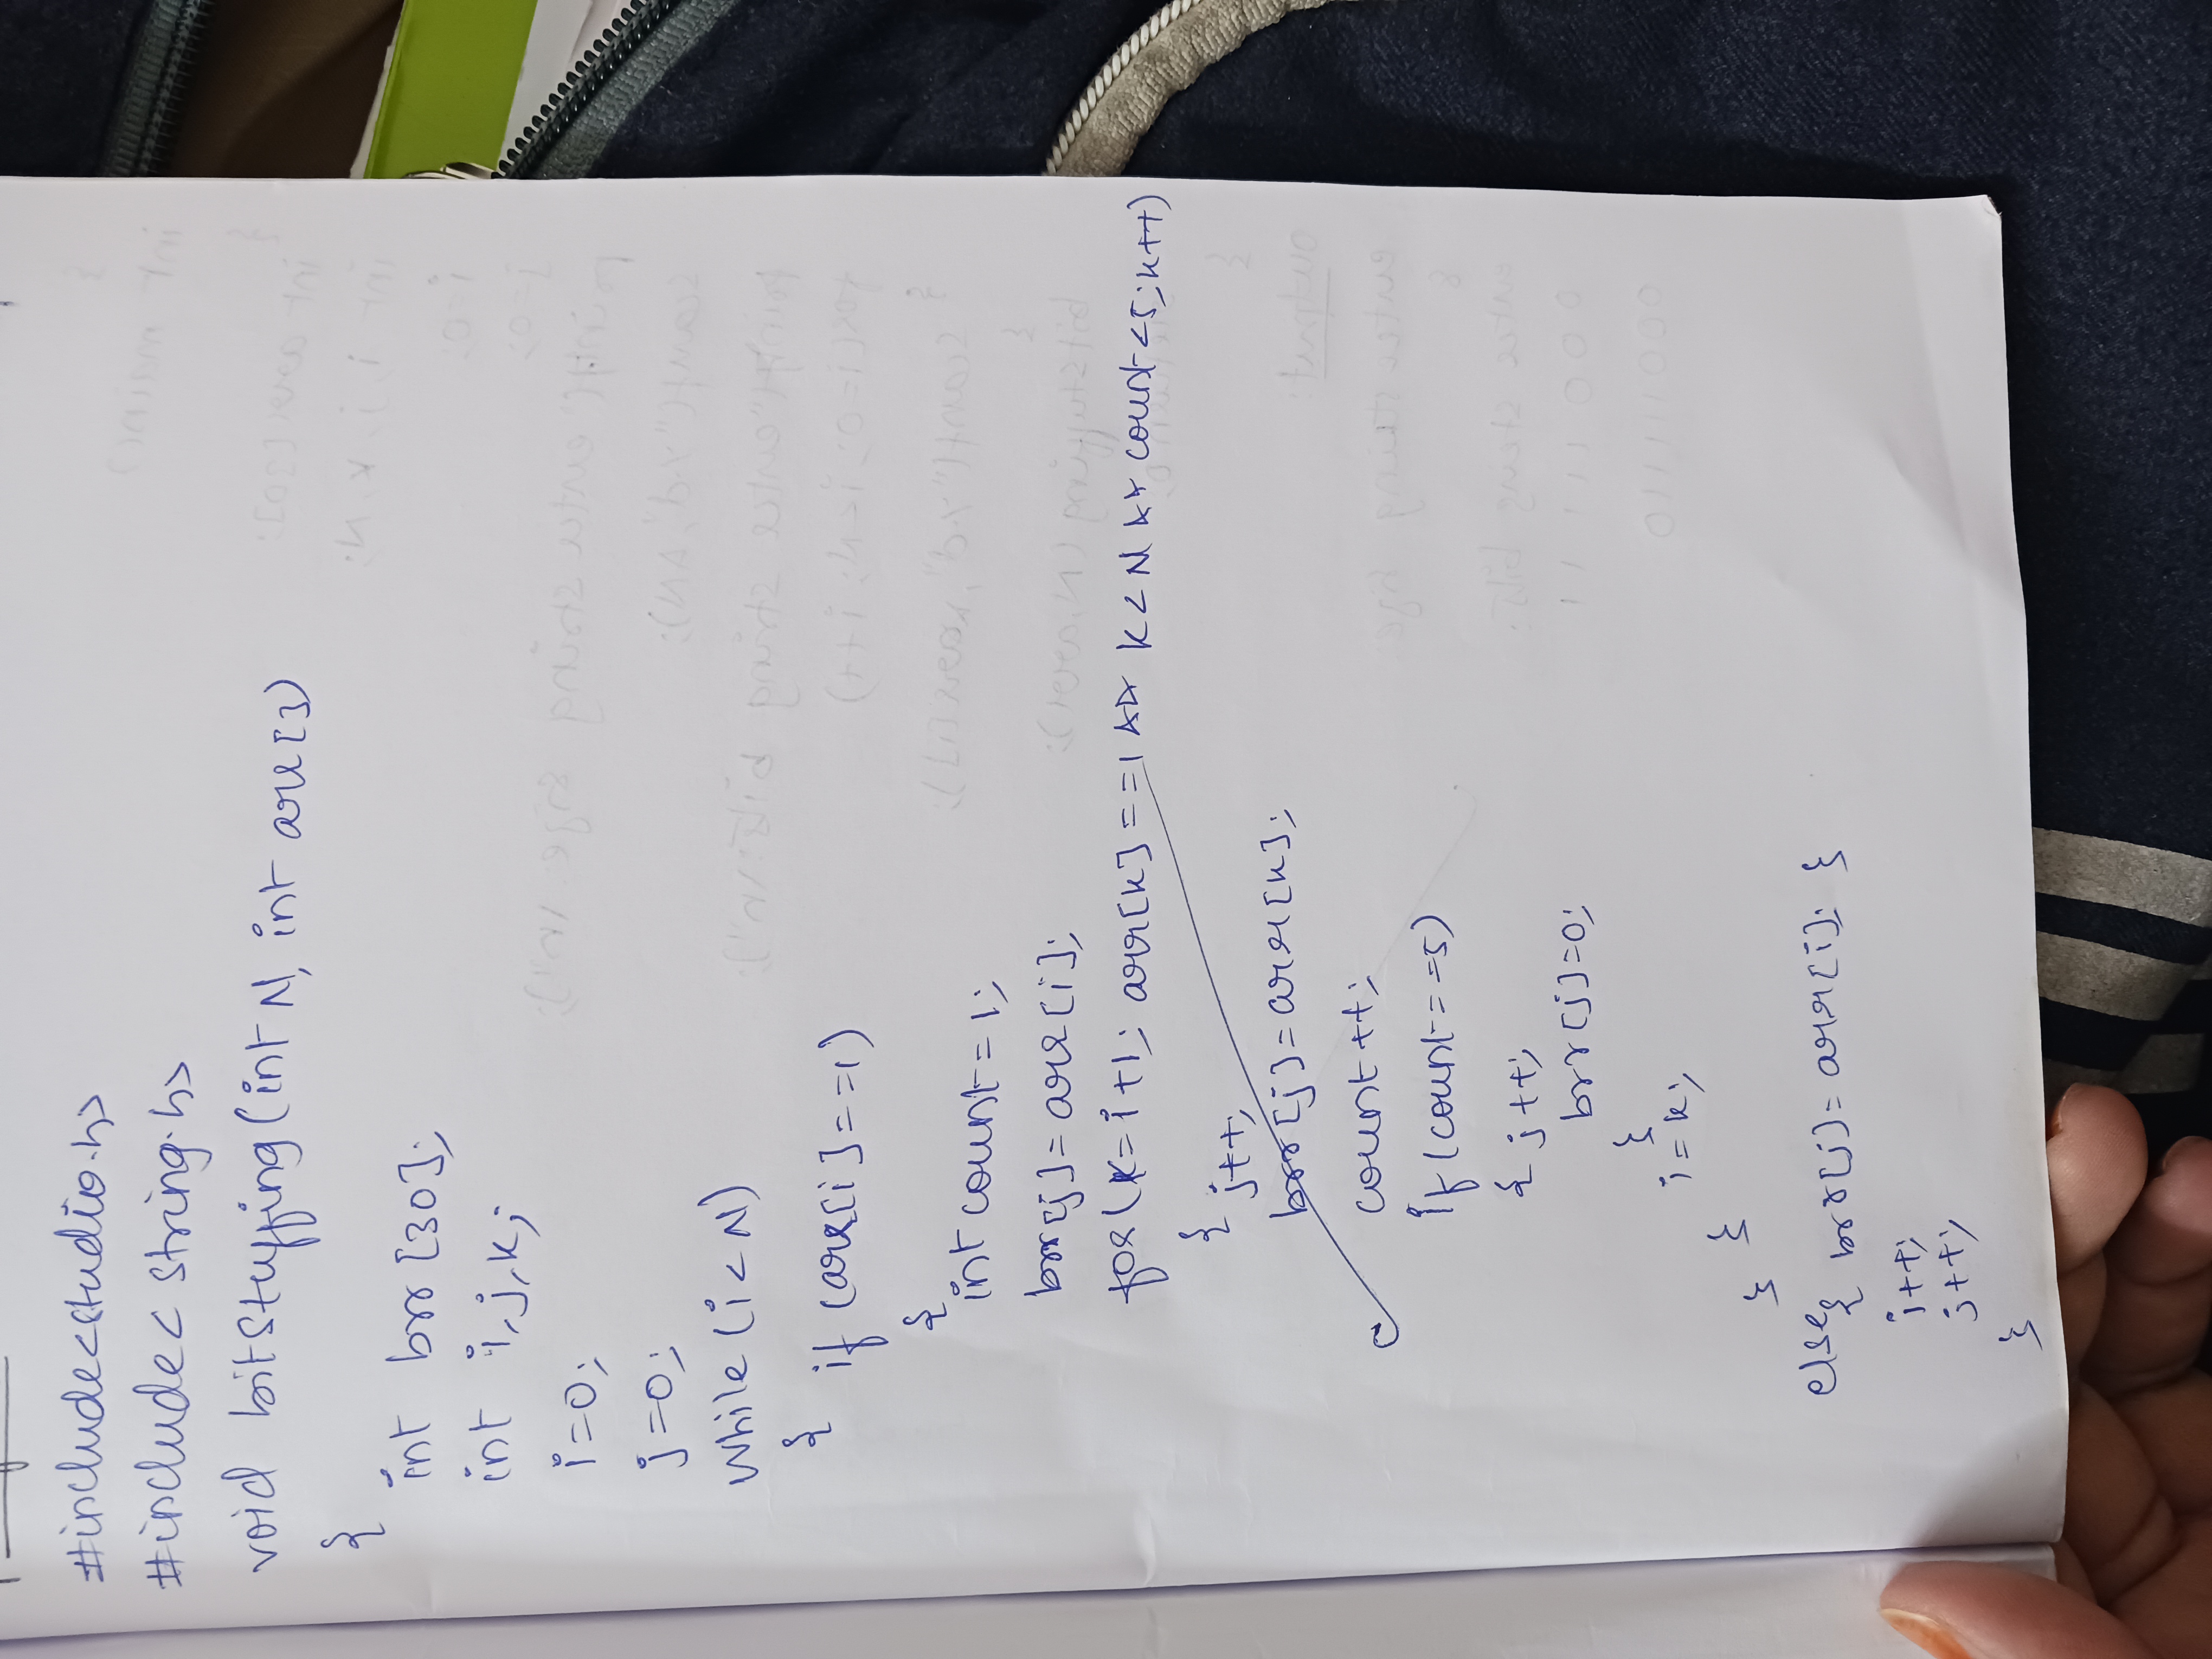 #include<studio.h>
#include< string.h>
void bitStuffing(int N, int arr[])
{
int brr [30];
int i,j,k;
i=0;
j=0;
while (i<N)
{ if (arr[i]==1)
{
int count=1;
brr[j]=arr[i];
for(k=i+1; arr[k]==1 && k<N && count<5;k++)
{ j++;
brr[j]=arr[k];
count++;
if(count==5)
{ j++;
brr[j]=0;
}
i=k;
}
}
else{ brr[j]=arr[i]; }
i++;
j++;
}